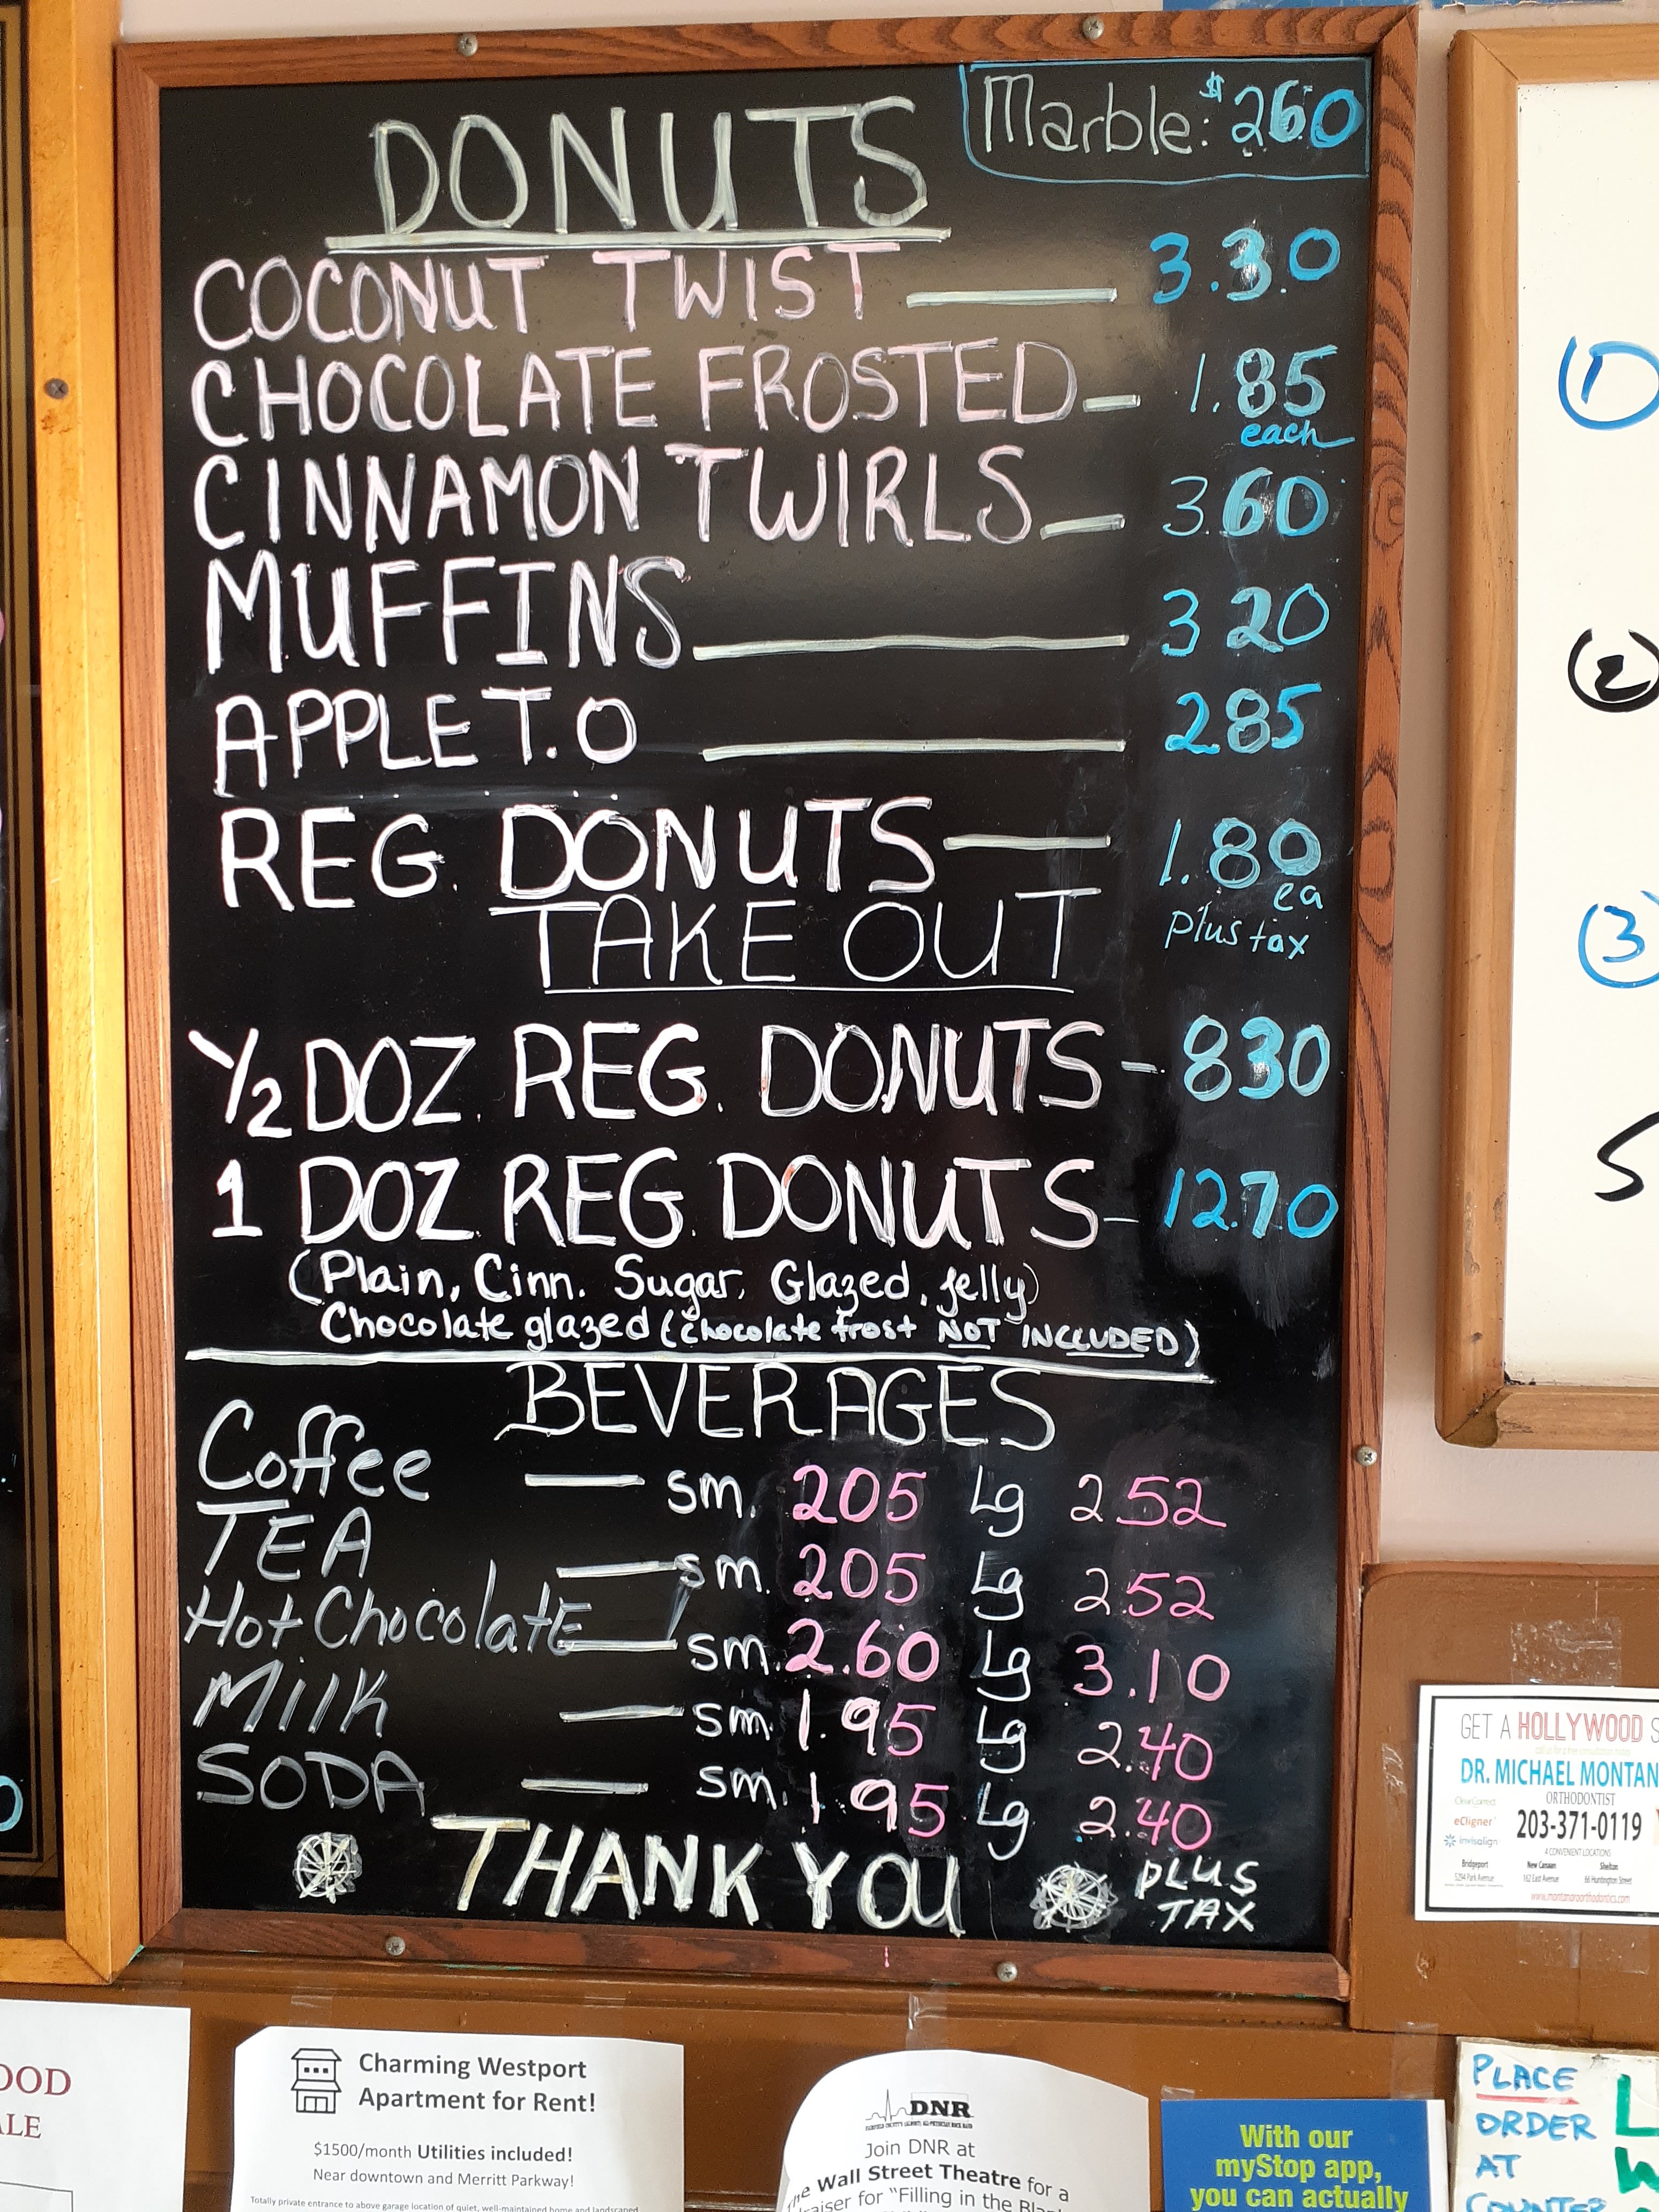 Marble: $260
DONUTS
COCONUT TWIST 3.30
CHOCOLATE FROSTED 1.85
each
CINNAMON TWIRLS 360
MUFFINS 320
APPLE T.O 285
REG. DONUTS 1.80
ea
plus tax
TAKE OUT
1/2 DOZ. REG. DONUTS - 830
1 DOZ. REG. DONUTS - 1270
(Plain, Cinn. Sugar, Glazed, Jelly)
Chocolate glazed (chocolate frost NOT INCLUDED)
BEVERAGES
Coffee sm. 205 Lg 252
TEA sm. 205 Lg 252
Hot Chocolate sm. 2.60 Lg 3.10
Milk sm. 1.95 Lg 2.40
SODA sm. 1.95 Lg 2.40
THANK YOU
PLUS
TAX
1
2
3
GET A HOLLYWOOD S
DR. MICHAEL MONTAN
ORTHODONTIST
eCligner
203-371-0119
invisalign
4 CONVENIENT LOCATIONS
Bridgeport New Canaan Shelton
5254 Park Avenue 162 East Avenue 66 Huntington Street
www.montanaroorthodontics.com
OOD
ALE
Charming Westport
Apartment for Rent!
$1500/month Utilities included!
Near downtown and Merritt Parkway!
Totally private entrance to above garage location of quiet, well-maintained home and landscaped
DNR
Join DNR at
Wall Street Theatre for a
raiser for "Filling in the Blan
With our
myStop app,
you can actually
PLACE
ORDER
AT
COUNTER